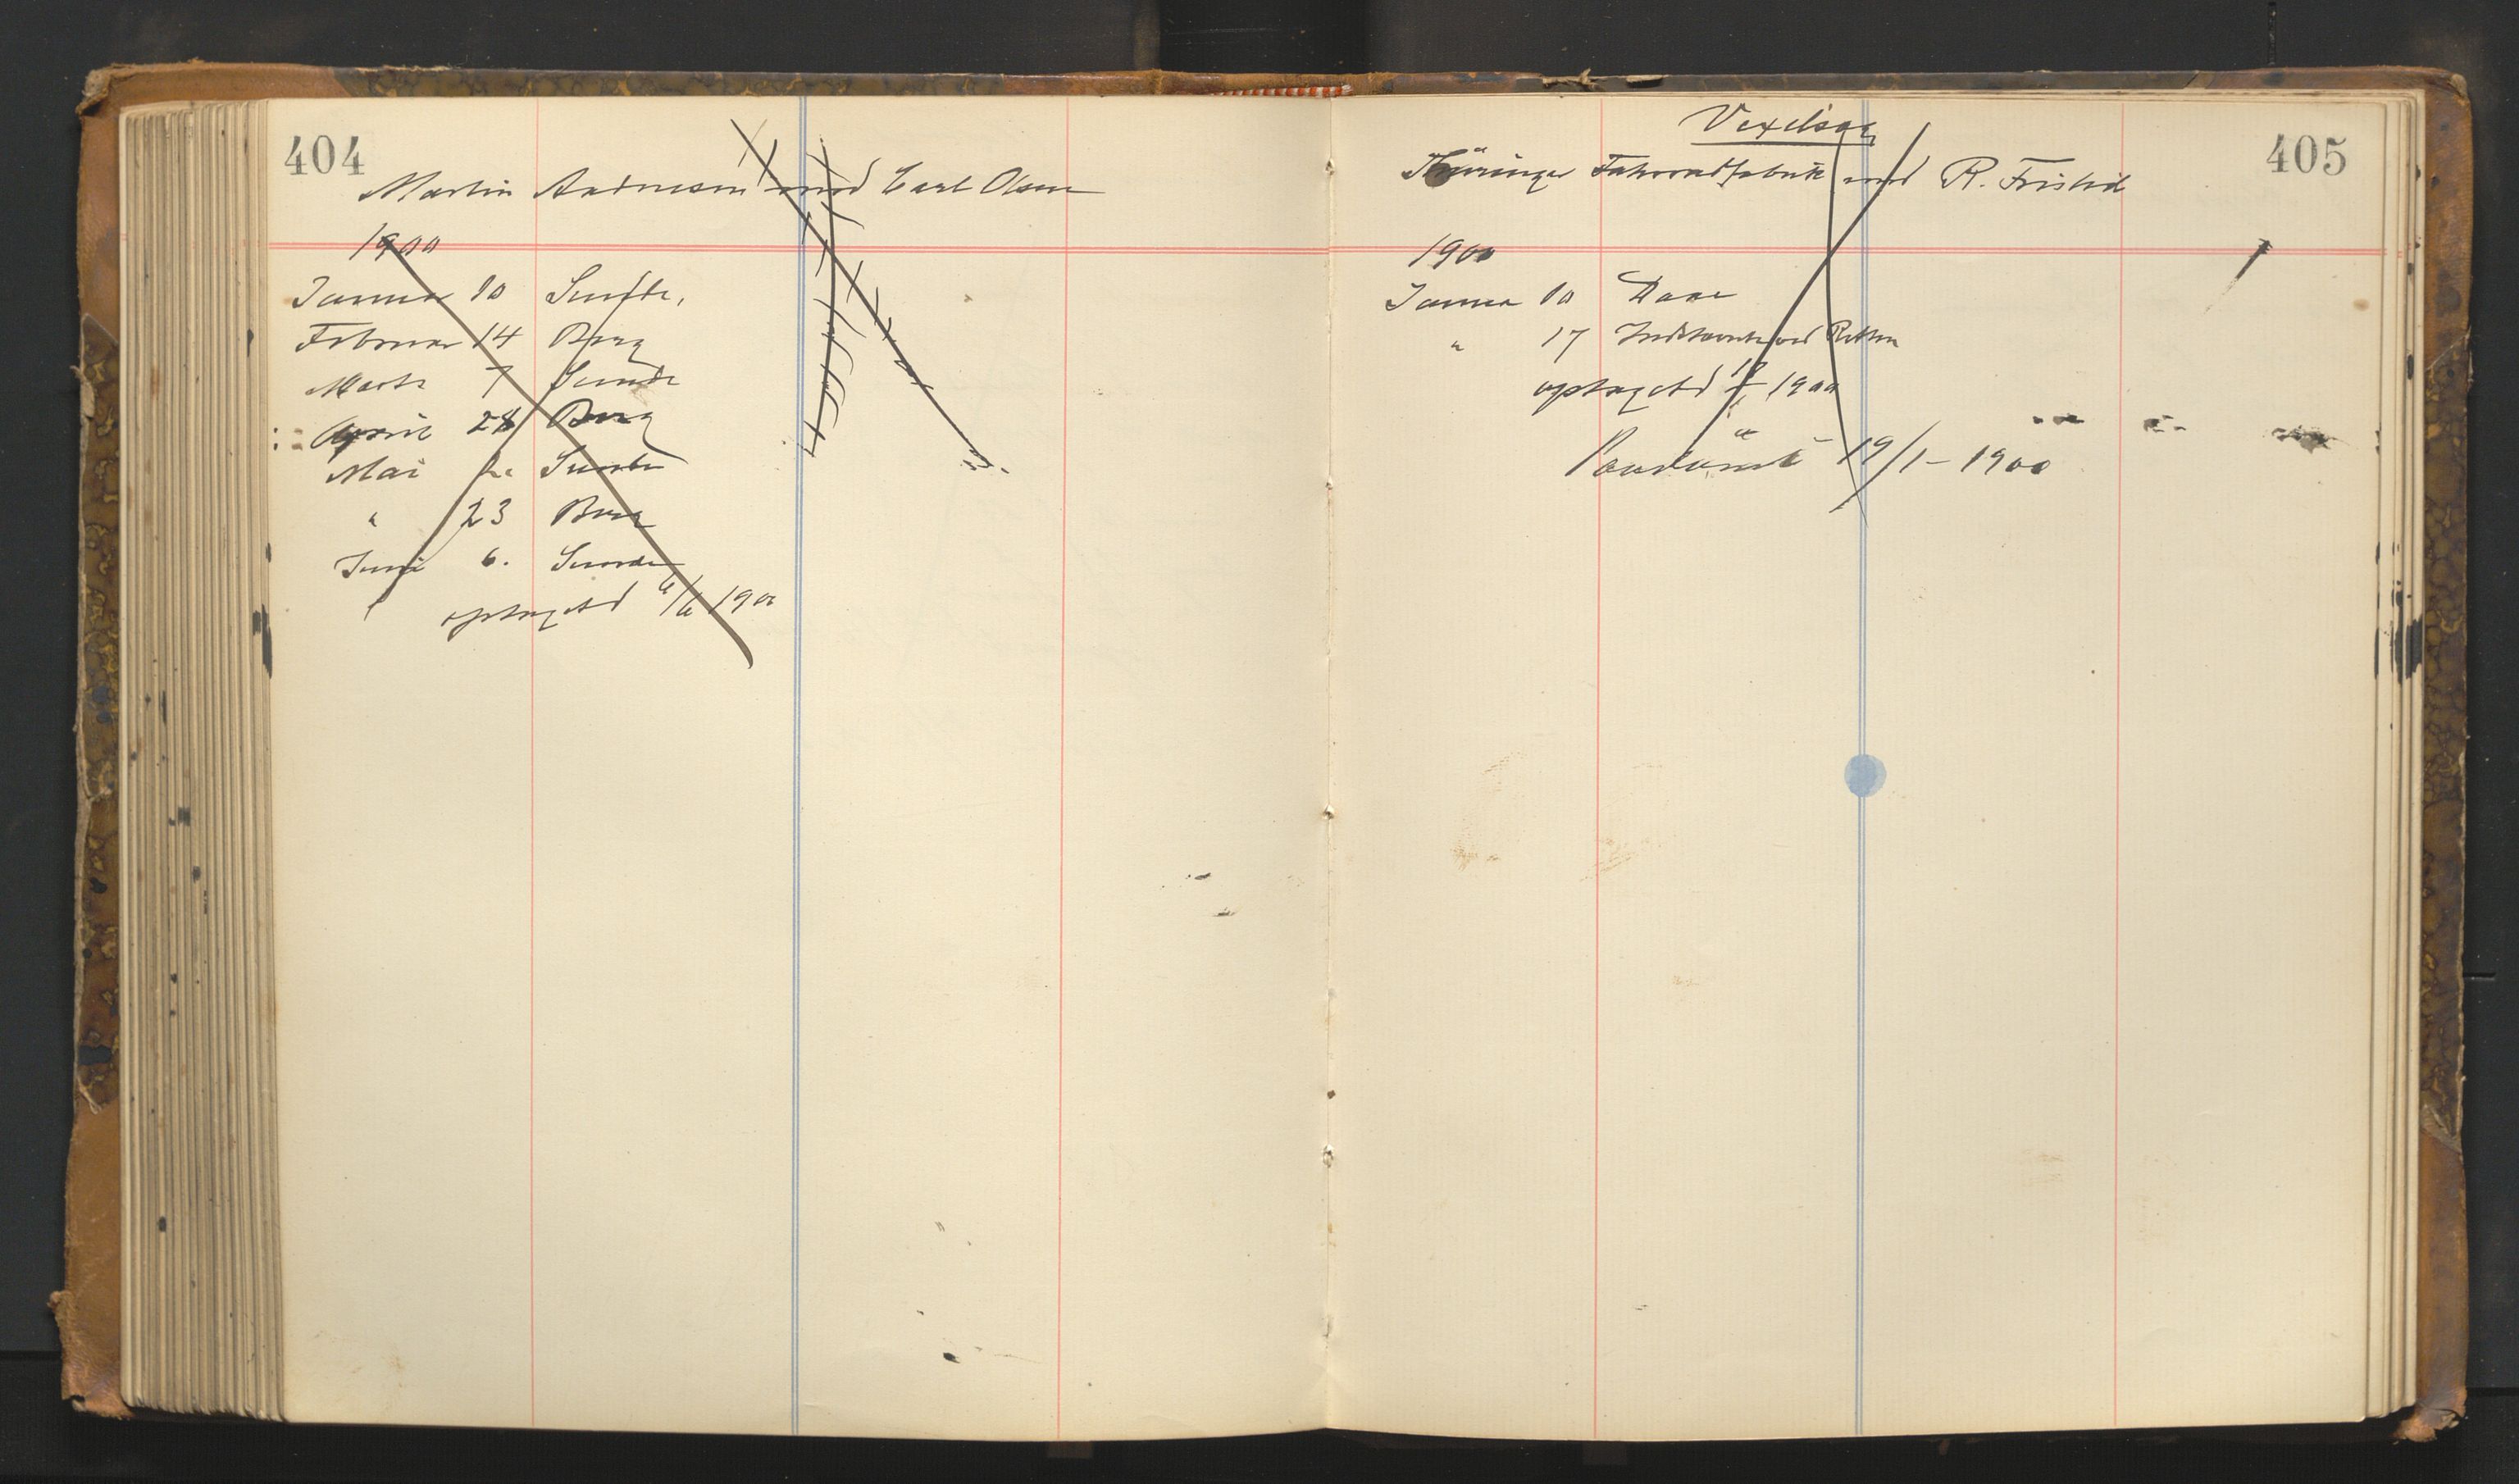 404
Martin Andresen mod Carl Olsen
1900
Januar 10 Sunde,
Februar 14 Berg
Marts 7 Sunde
April 28 Berg
Mai 2. Sunde
" 23 Berg
Juni 6. Sunde
optaget d 6/6 1900
405
Vexelsag
Thüringer Fahrradfabrik mod R. Fristed
1900
Januar 10 Daae
" 17 Indstævnte ved Retten
optaget d 1900
19/1 - 1900